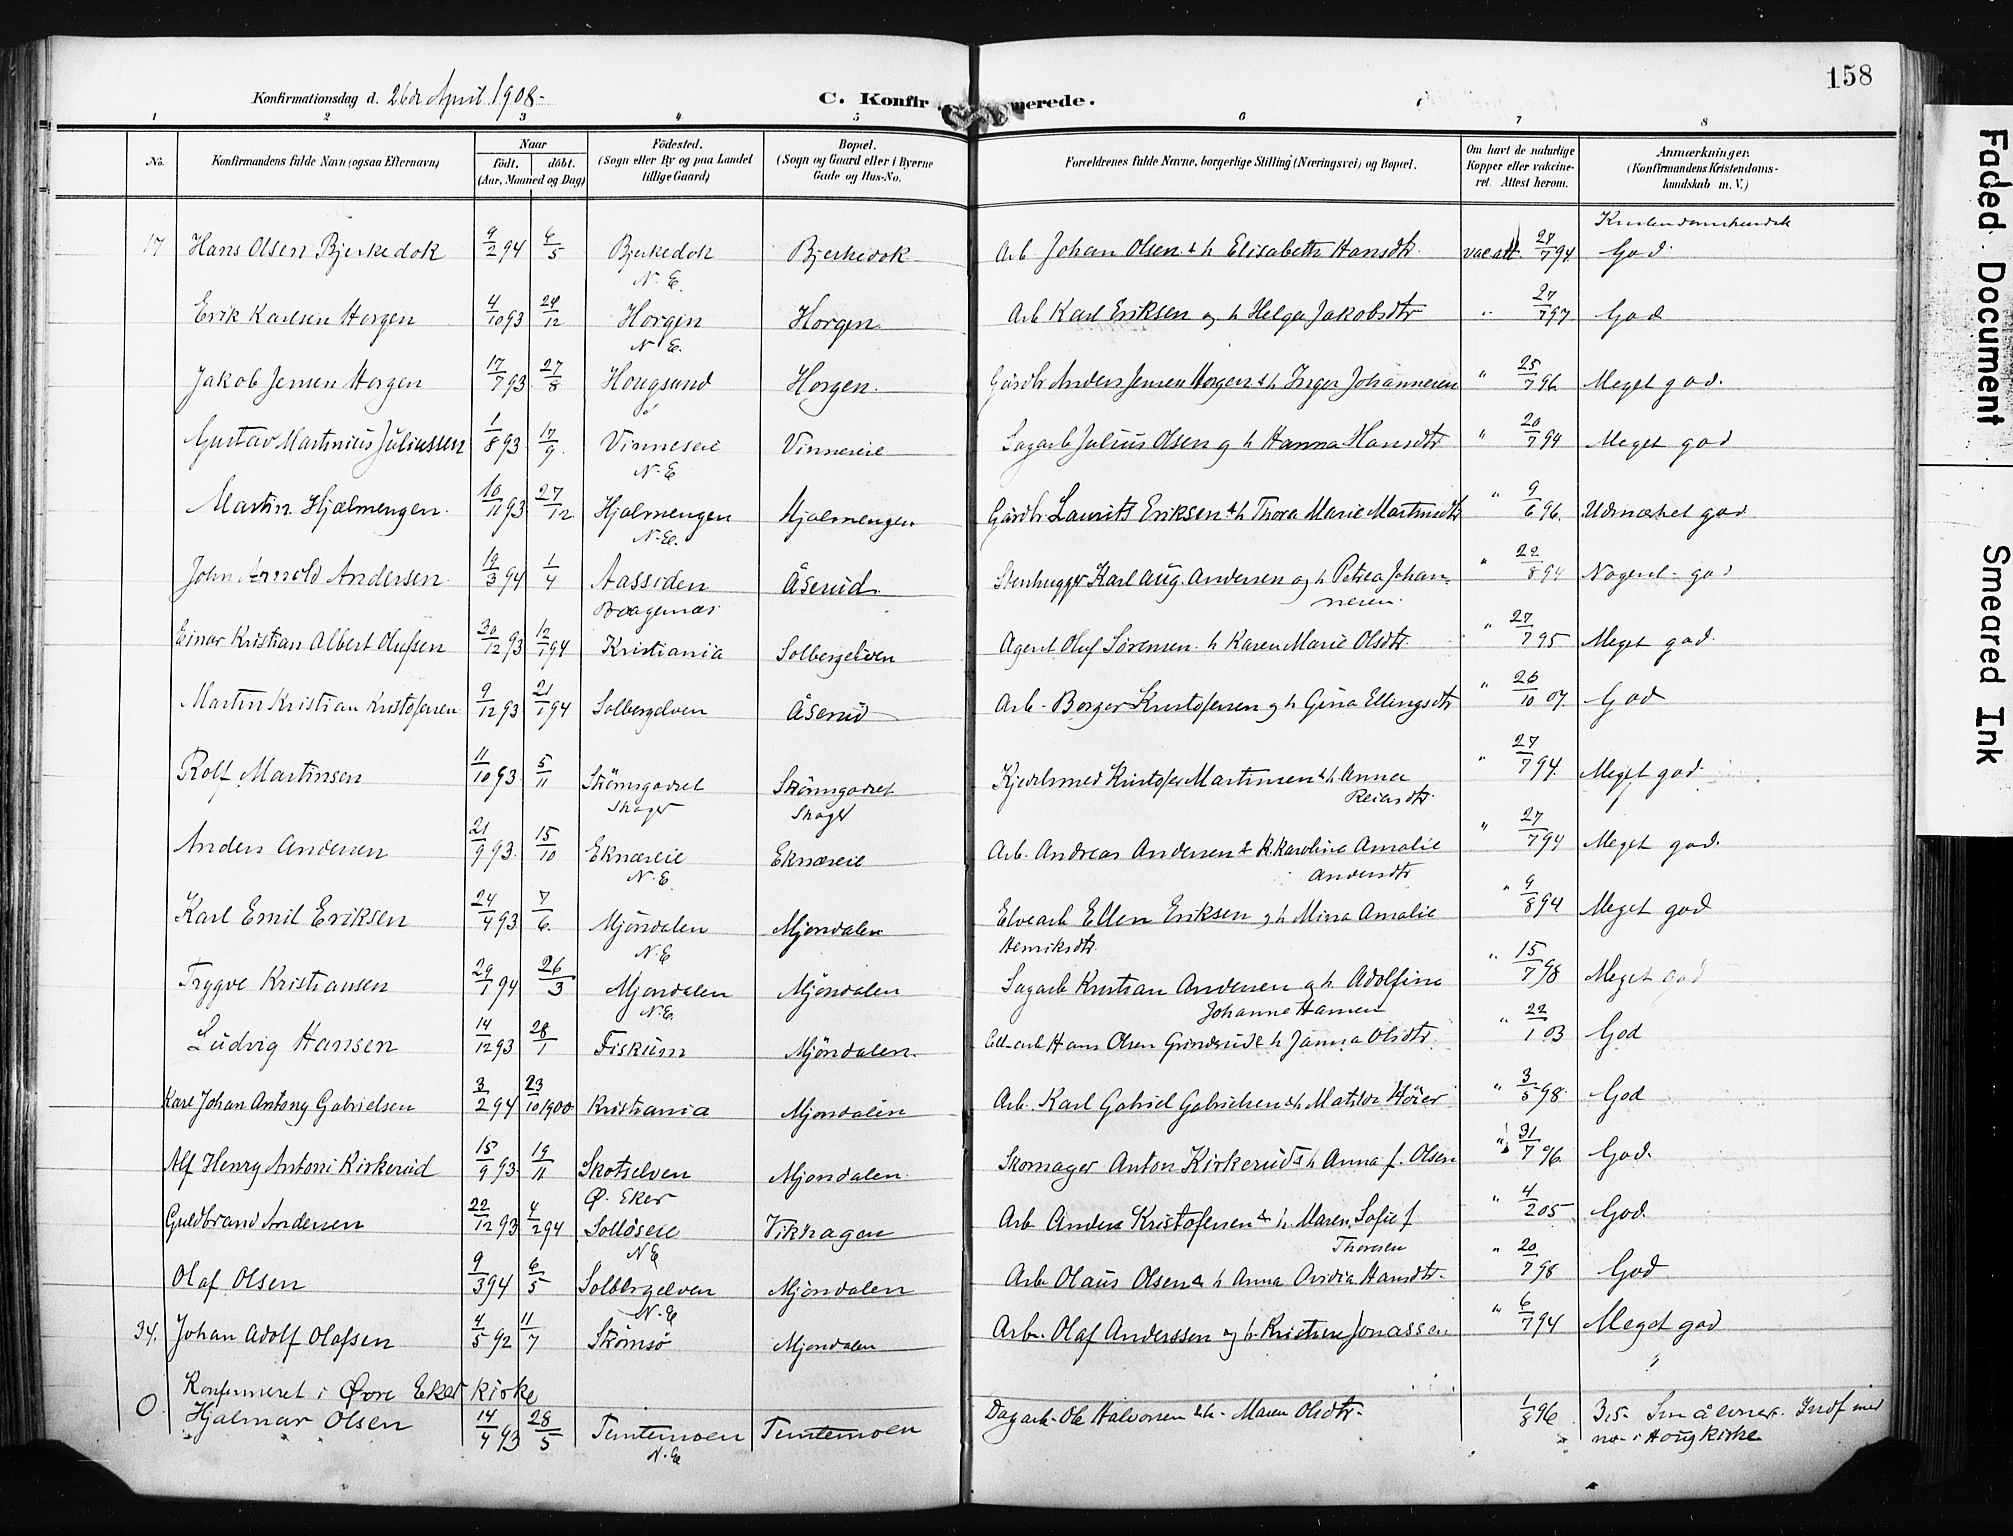 158
Konfirmationsdag d. 26de April 1908.
C. Konfirmerede.
1 2 3 4 5 6 7 8
No. Konfirmandens fulde Navn (ogsaa Efternavn) Naar født. døbt. (Aar, Maaned og Dag) Fødested. (Sogn eller By og paa Landet tillige Gaard) Bopæl. (Sogn og Gaard eller i Byerne Gade og Hus-No. Forældrenes fulde Navne, borgerlige Stilling (Næringsvei) og Bopæl. Om havt de naturlige Kopper eller vakcineret. Attest herom. Anmærkninger. (Konfirmandens Kristendomskundskab m. V.)
17 Hans Olsen Bjerkedok 9/2 94 6/5 Bjerkedok N. E. Bjerkedok Arb Johan Olsen & h Elisabeth Hansdtr 27/7 94 God
Erik Karlsen Horgen 4/10 93 24/12 Horgen N. E. Horgen Arb Karl Eriksen og h Helga Jakobsdtr " 27/7 97 God
Jakob Jensen Horgen 17/7 93 27/8 Hougsund Horgen. Gårdbr Anders Jensen Horgen & h Inger Johannesen " 25/7 96 Meget god.
Gustav Martinius Juliussen 1/8 93 17/9 Vinneseie N. E Vinneseie Sagarb Julius Olsen og h Hanna Hansdtr " 20/7 94 Meget god
Martin Hjælmengen 10/11 93 27/12 Hjælmengen N. E. Hjælmengen Gårdbr Laurits Eriksen & h Thora Marie Martinsdtr " 9/6 96. Udmærket god
John Arnold Andersen 19/3 94 1/4 Aassiden Bragernæs Åserud Stenhugger Karl Aug. Andersen og h Petrea Johannesen " 22/8 94 Nogenl. god
Einar Kristian Albert Olufsen 30/12 93 12/1 94 Kristiania Solbergelven Agent Oluf Sørensen h Karen Marie Olsdtr " 27/7 95 Meget god.
Martin Kristian Kristofersen 9/12 93 21/1 94 Solbergelven Åserud Arb. Borger Kristofersen og h Gina Ellingsdtr " 26/10 07. God
Rolf Martinsen 11/10 93 5/11 Strømsgodset Skoger Strømsgodset Skoger Kjedelsmed Kristofer Martinsen & h Anna Reiersdtr " 27/7 94. Meget god.
Anders Andersen 21/9 93. 15/10 Eknæseie N. E Eknæseie Arb. Andreas Andersen & h. Karoline Amalie Andersdtr " 27/7 94 Meget god.
Karl Emil Eriksen 24/4 93 7/6. Mjøndalen N. E Mjøndalen Elvearb Ellen Eriksen og h Mina Amalie Henriksdtr. " 9/8 94 Meget god
Trygve Kristiansen 29/1 94 26/3 Mjøndalen N. E. Mjøndalen Sagarb Kristian Andersen og h Adolfine Johanne Hansen " 15/7 98 Meget god
Ludvig Hansen 14/12 93 28/1 Fiskum Mjøndalen. Cell-arb Hans Olsen Grinderud & h Janna Olsdtr. " 22/1 03 God
Karl Johan Antony Gabrielsen 3/2 94 23/10 1900 Kristiania Mjøndalen Arb. Karl Gabriel Gabrielsen & h Matilda Höier " 3/5 98. God
Alf Henry Antoni Kirkerud 15/9 93 19/11 Skotselven Ø. Eker Mjøndalen Skomager Anton Kirkerud & h Anna f. Olsen " 31/7 96. God.
Guldbrand Andersen 22/12 93 4/2 94 Solløseie N E Vikhagen Arb Anders Kristofersen & h. Maren Sofie f Thoresen " 4/2 05 God.
Olaf Olsen 9/3 94 6/5 Solbergelven N. E Mjøndalen Arb Olaus Olsen & h Anna Ovidia Hansdtr. " 20/7 98 God
34. Johan Adolf Olafsen 4/5 92 11/7 Strømsø Mjøndalen Arb. Olaf Anderssen og h. Kristine Jonassen. " 6/7 94 Meget god
Konfirmeret i Øvre Eker Kirke
O Hjalmar Olsen 14/4 93 28/5 Temtemoen N. E Temtemoen Dagarb. Ole Halvorsen & h. Maren Olsdtr. 1/8 96 3.5 Småelver. Indf med no - i Houg Kirke
Faded Document
Smeared Ink